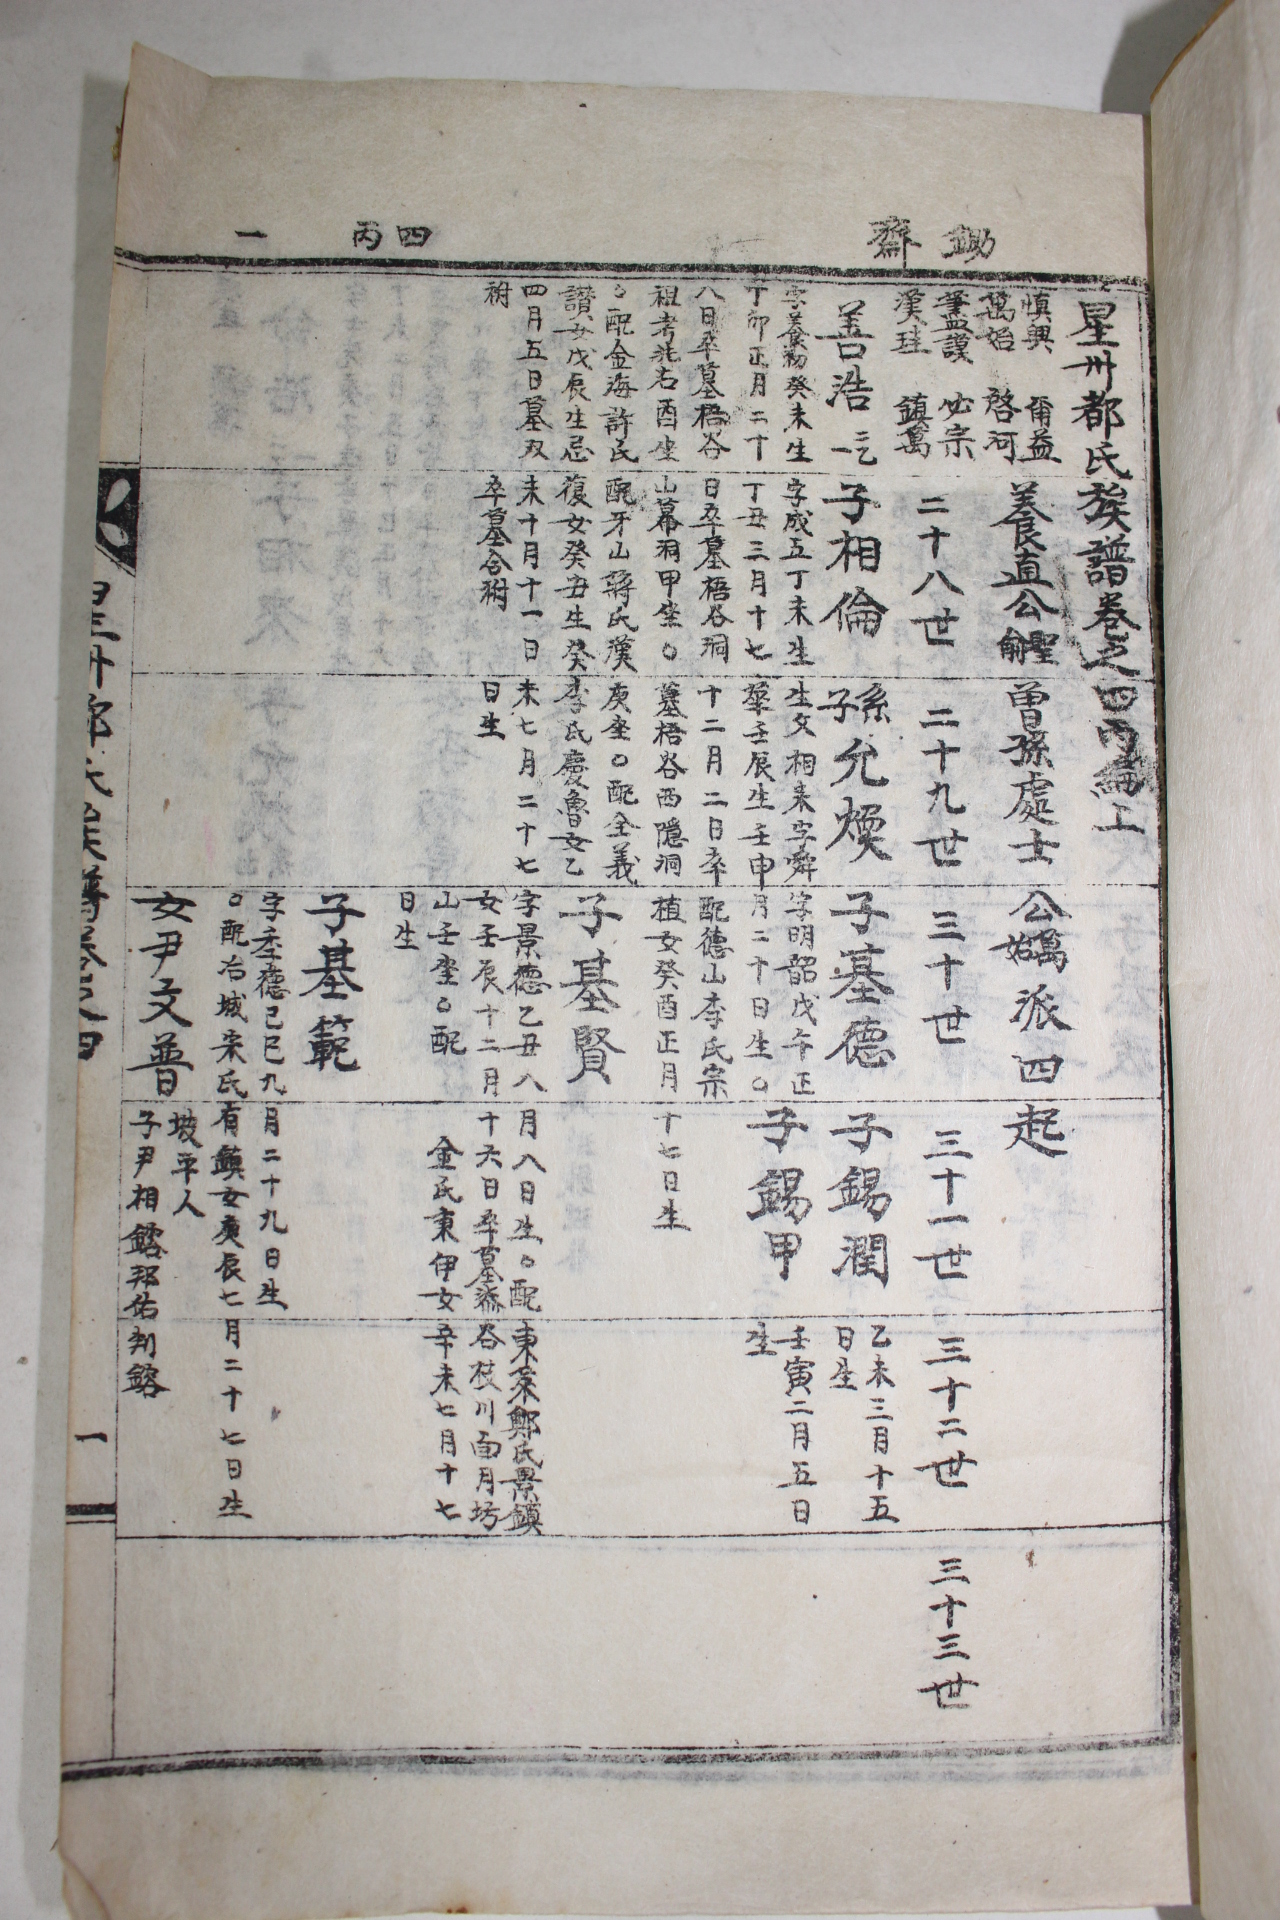 鋤齋
四丙 一
星州都氏族譜卷之四丙編上
慎興 爾益
萬始 啓河
藎謨 必宗
漢珪 鎮萬
養直公 曾孫處士公 萬始 派 四 起
二十八世
二十九世
三十世
三十一世
三十二世
三十三世
善浩
字養初癸未生
丁卯正月二十
八日卒墓梧谷
祖考兆右酉坐
○配金海許氏
讃女戊辰生忌
四月五日墓双
祔
子相倫
字成五丁未生
丁丑三月十七
日卒墓梧谷洞
山幕洞甲坐○
配牙山蔣氏漢
復女癸丑生癸
未十月十一日
卒墓合祔
孫子允煥
生父相來字舜
華壬辰生壬申
十二月二日卒
墓梧谷西隠洞
庚坐○配全義
李氏慶魯女乙
未七月二十七
日生
子基德
字明韶戊午正
月二十日生○
配德山李氏宗
植女癸酉正月十七日生
子錫潤
乙未三月十五
日生
子錫甲
壬寅二月五日
生
子基賢
字景德乙丑八月八日生○配東萊鄭氏景鎮
女壬辰十二月十六日卒墓漆谷枝川面月塢
山壬坐○配金氏東伊女辛未七月十七
日生
子基範
字季德己巳九月二十九日生
○配冶城宋氏有鎮女庚辰七月二十七日生
女尹文普
坡平人
子尹相鎔邦佑判鎔
星州都氏族譜卷之四
一